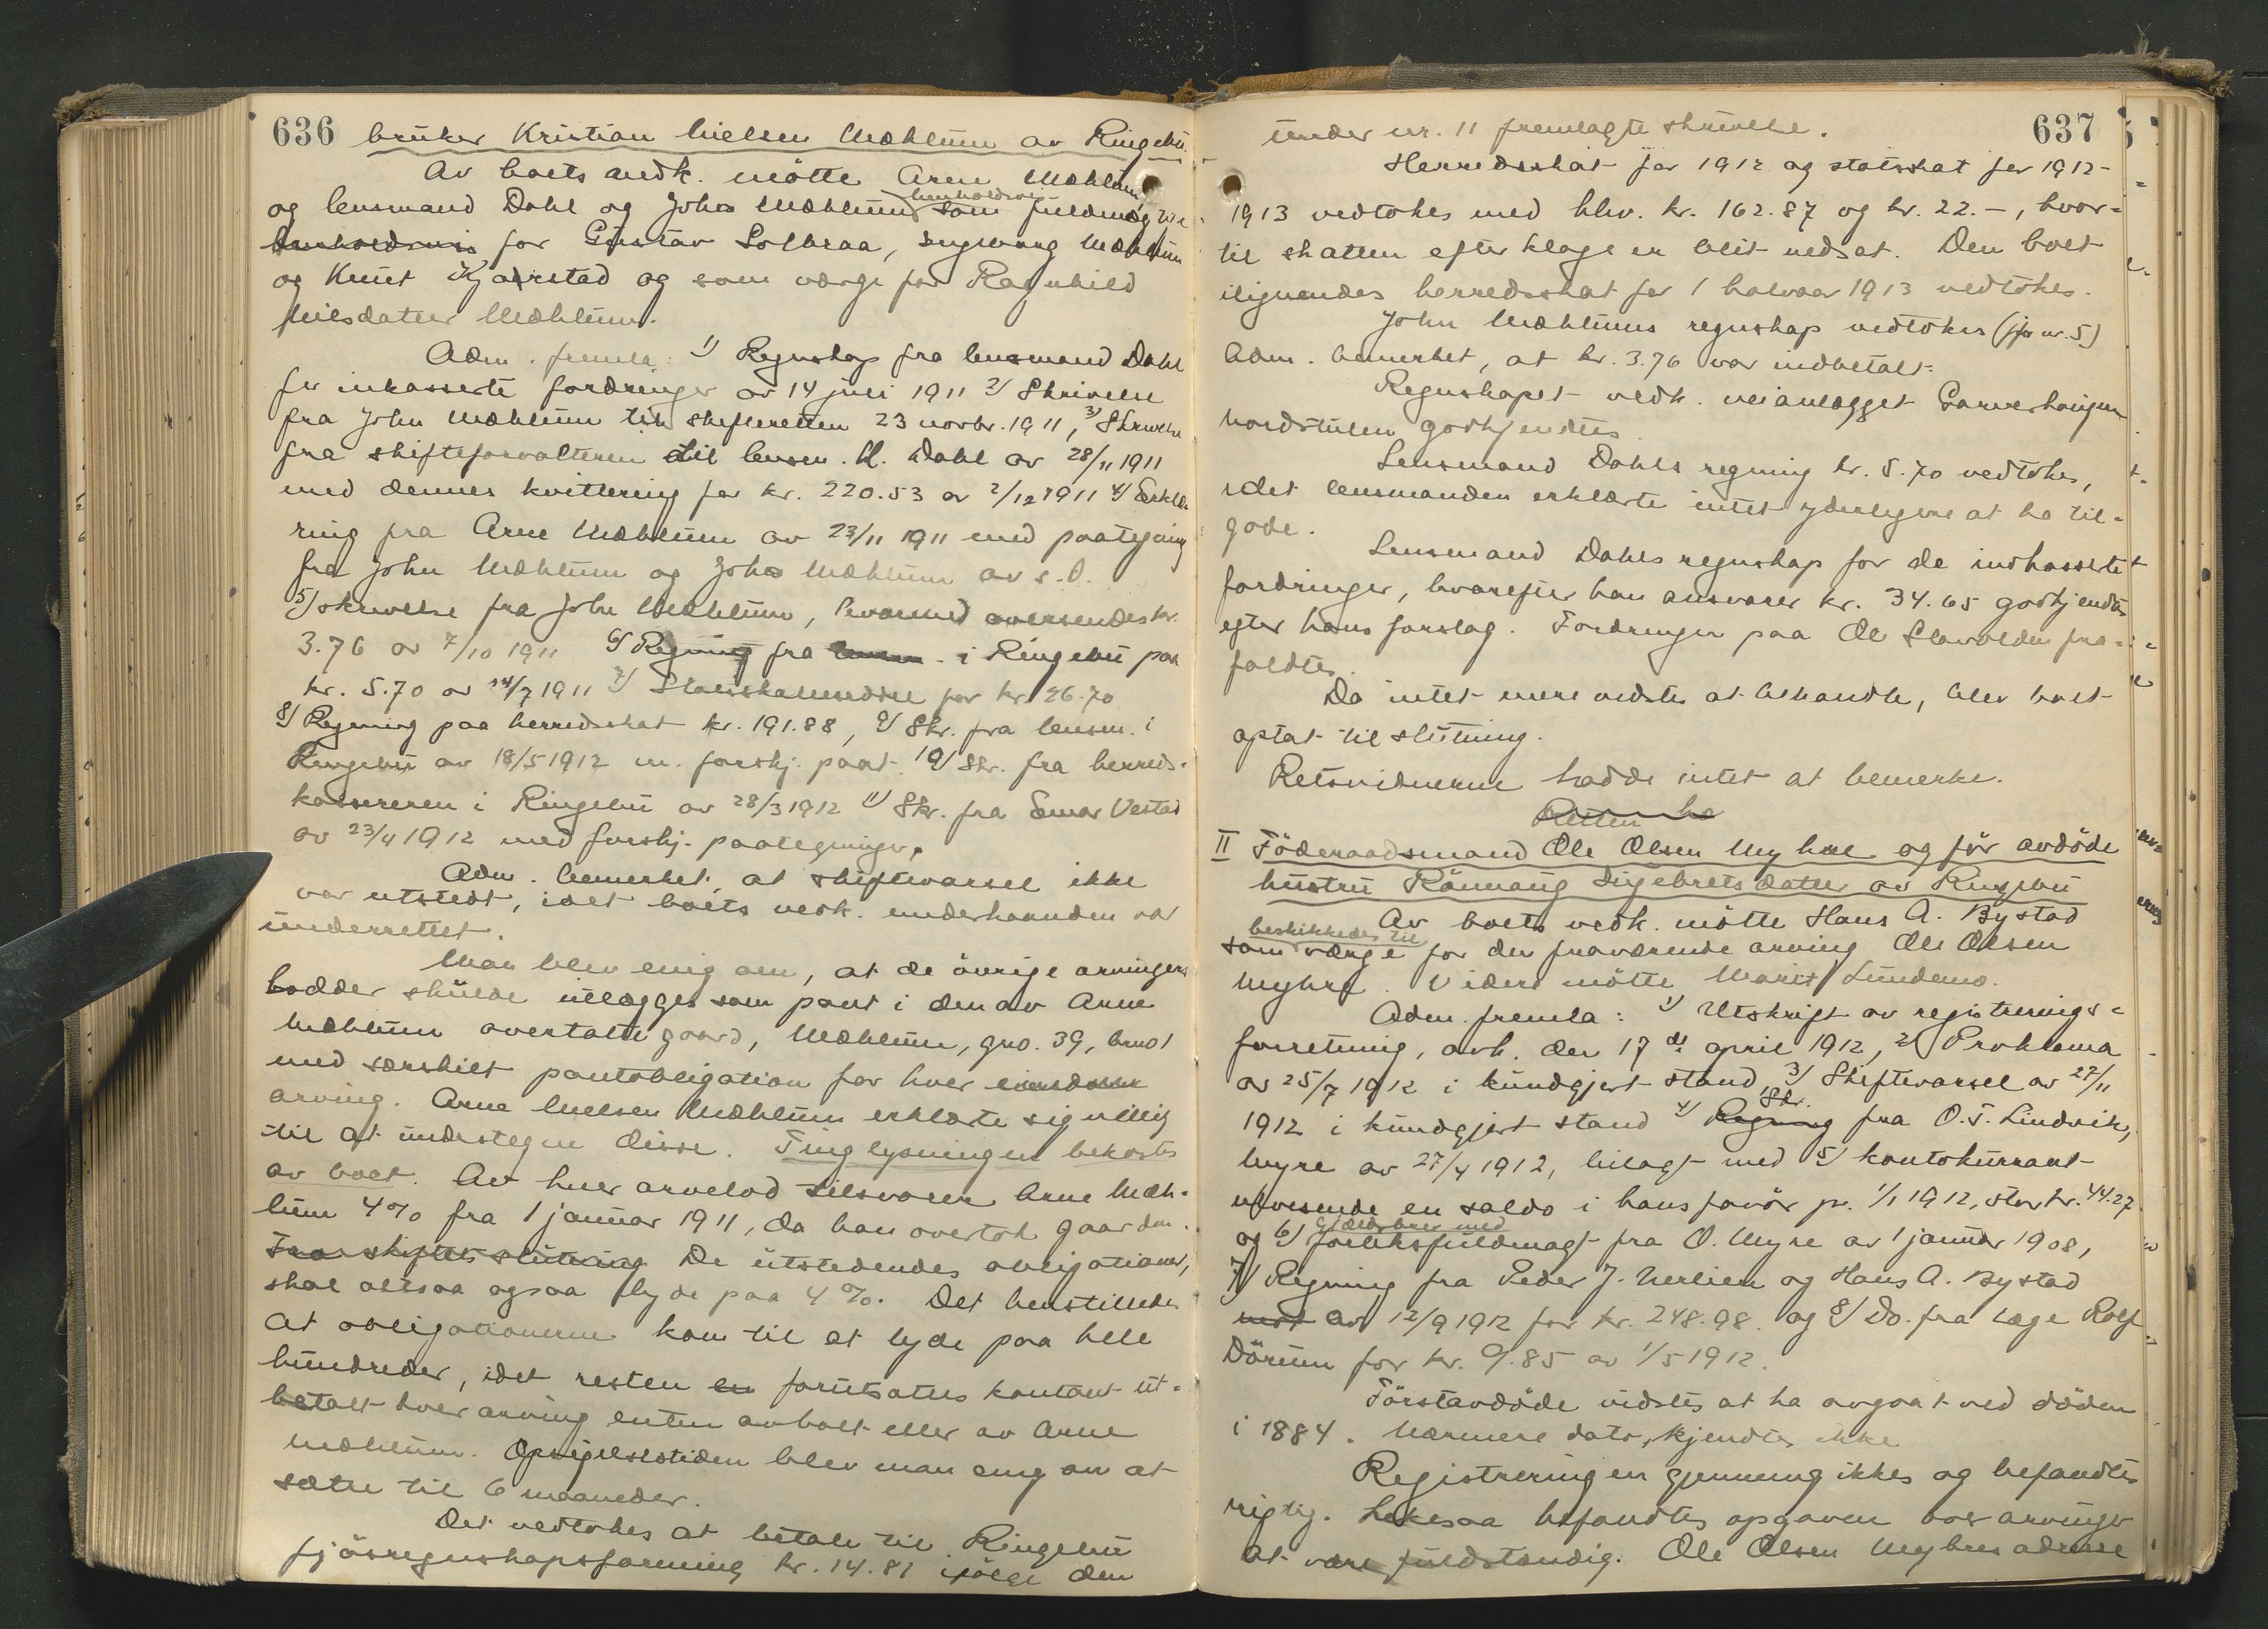 636 bruker Kristian Nielsen Mæhlum av Ringebu.
Av boets vedk. mötte Arne Mæhlum
og lensmand Dahl og Johs Mæhlum henholdsvis som fuldmægtig
henholdsvis for Gustav Solbraa, Ingeborg Mæhlum
og Knut Kjørstad og som værge for Ragnhild
Nilsdatter Mæhlum.
Adm. fremla: 1/ Regnskap fra lensmand Dahl
for inkasserte fordringer av 14 juli 1911 2/ Skrivelse
fra John Mæhlum til skifteretten 23 novbr. 1911, 3/ Skrivelse
fra skifteforvalteren til lensm. H. Dahl av 28/11 1911
med dennes kvittering for kr. 220.53 av 2/12 1911 4/ Erklæ-
ring fra Arne Mæhlum av 23/11 1911 med paategning
fra John Mæhlum og Johs Mæhlum av s. d.
5/ skrivelse fra John Mæhlum, hvormed oversendes kr.
3.76 av 7/10 1911 6/ Regning fra lensm. i Ringebu paa
kr. 5.70 av 14/7 1911 7/ Statsskatteseddel for kr 26.70
8/ Regning paa herredsskat kr. 191.88, 9/ Skr. fra lensm. i
Ringebu av 18/5 1912 m. forskj. paat. 10/ Skr. fra herreds-
kassereren i Ringebu av 28/3 1912 11/ Skr. fra Einar Vestad
av 23/4 1912 med forskj. paategninger.
Adm. bemerket, at skiftevarsel ikke
var utstedt, idet boets vedk. underhaanden var
underrettet.
Man blev enig om, at de övrige arvingers
lodder skulde utlægges som pant i den av Arne
Mæhlum overtatte gaard, Mæhlum, gno. 39, bno 1
med særskilt pantobligation for hver
arving. Arne Nielsen Mæhlum erklærte sig villig
til at undertegne disse. Tinglysningen bekostes
av boet. Av hver arvelod tilsvarer Arne Mæh-
lum 4% fra 1 januar 1911, da han overtok gaarden.
Fra skiftets slutning De utstedendes obligationer,
skal altsaa ogsaa lyde paa 4%. Det henstilledes
at obligationerne kom til at lyde paa hele
hundreder, idet resten er forutsattes kontant ut-
betalt hver arving enten av boet eller av Arne
Mæhlum. Opsigelsestiden blev man enig om at
sætte til 6 maaneder.
Det vedtokes at betale til Ringebu
fjösregnskapsforening kr. 14.81 ifölge den
637
under nr. 11 fremlagte skrivelse.
Herredsskat for 1912 og statsskat for 1912-
1913 vedtokes med hhv. kr. 162.87 og kr. 22.-, hvor-
til skatten efter klage er blit nedsat. Den boet
ilignendes herredsskat for 1 halvaar 1913 vedtokes.
John Mæhlums regnskap vedtokes (jfr nr. 5)
Adm. bemerket, at kr. 3.76 var indbetalt.
Regnskapet vedk. veianlægget
godkjendtes.
Lensmand Dahls regning kr. 5.70 vedtokes,
idet lensmanden erklærte intet yderligere at ha til-
gode.
Lensmand Dahls regnskap for de indkasserte
fordringer, hvorefter han ansvarer kr. 34.65 godkjendtes
efter hans forslag. Fordringen paa Ole fra-
faldtes.
Da intet mere vidstes at behandle, blev boet
optat til slutning.
Retsvidnerne hadde intet at bemerke.
Retten
II Föderaadsmand Ole Olsen Myhre og för avdöde
hustru Rönnaug Sigebretsdatter av Ringebu
Av boets vedk. mötte Hans A. Bystad
beskikkedes til
som værge for den fraværende arving Ole Olsen
Myhre. Videre mötte Marit Lundemo.
Adm. fremla: 1/ Utskrift av registrerings-
forretning, avh. den 17de april 1912, 2/ Proklama
av 25/7 1912 i kundgjort stand 3/ Skiftevarsel av 27/11
1912 i kundgjort stand 4/ Regning Skr. fra O. T. Lindvik,
Myre av 27/4 1912, bilagt med 5/ kontokurrant
utvisende en saldo i hans favör pr. 1/1 1912, stor kr. 44.27
og 6/ Gjældsbrev med forliksfuldmagt fra O. Myre av 1 januar 1908,
7/ Regning fra Peder J. Nerlien og Hans A. Bystad
av 12/9 1912 for kr. 248.98. og 8/ Do. fra læge Rolf
Dörum for kr. 9.85 av 1/5 1912.
Förstavdöde vidstes at ha avgaat ved döden
i 1884. Nærmere dato, kjendtes ikke
Registreringen gjennemgikkes og befandtes
rigtig. Likesaa befandtes opgaven over arvinger
at være fuldstændig. Ole Olsen Myhres adresse